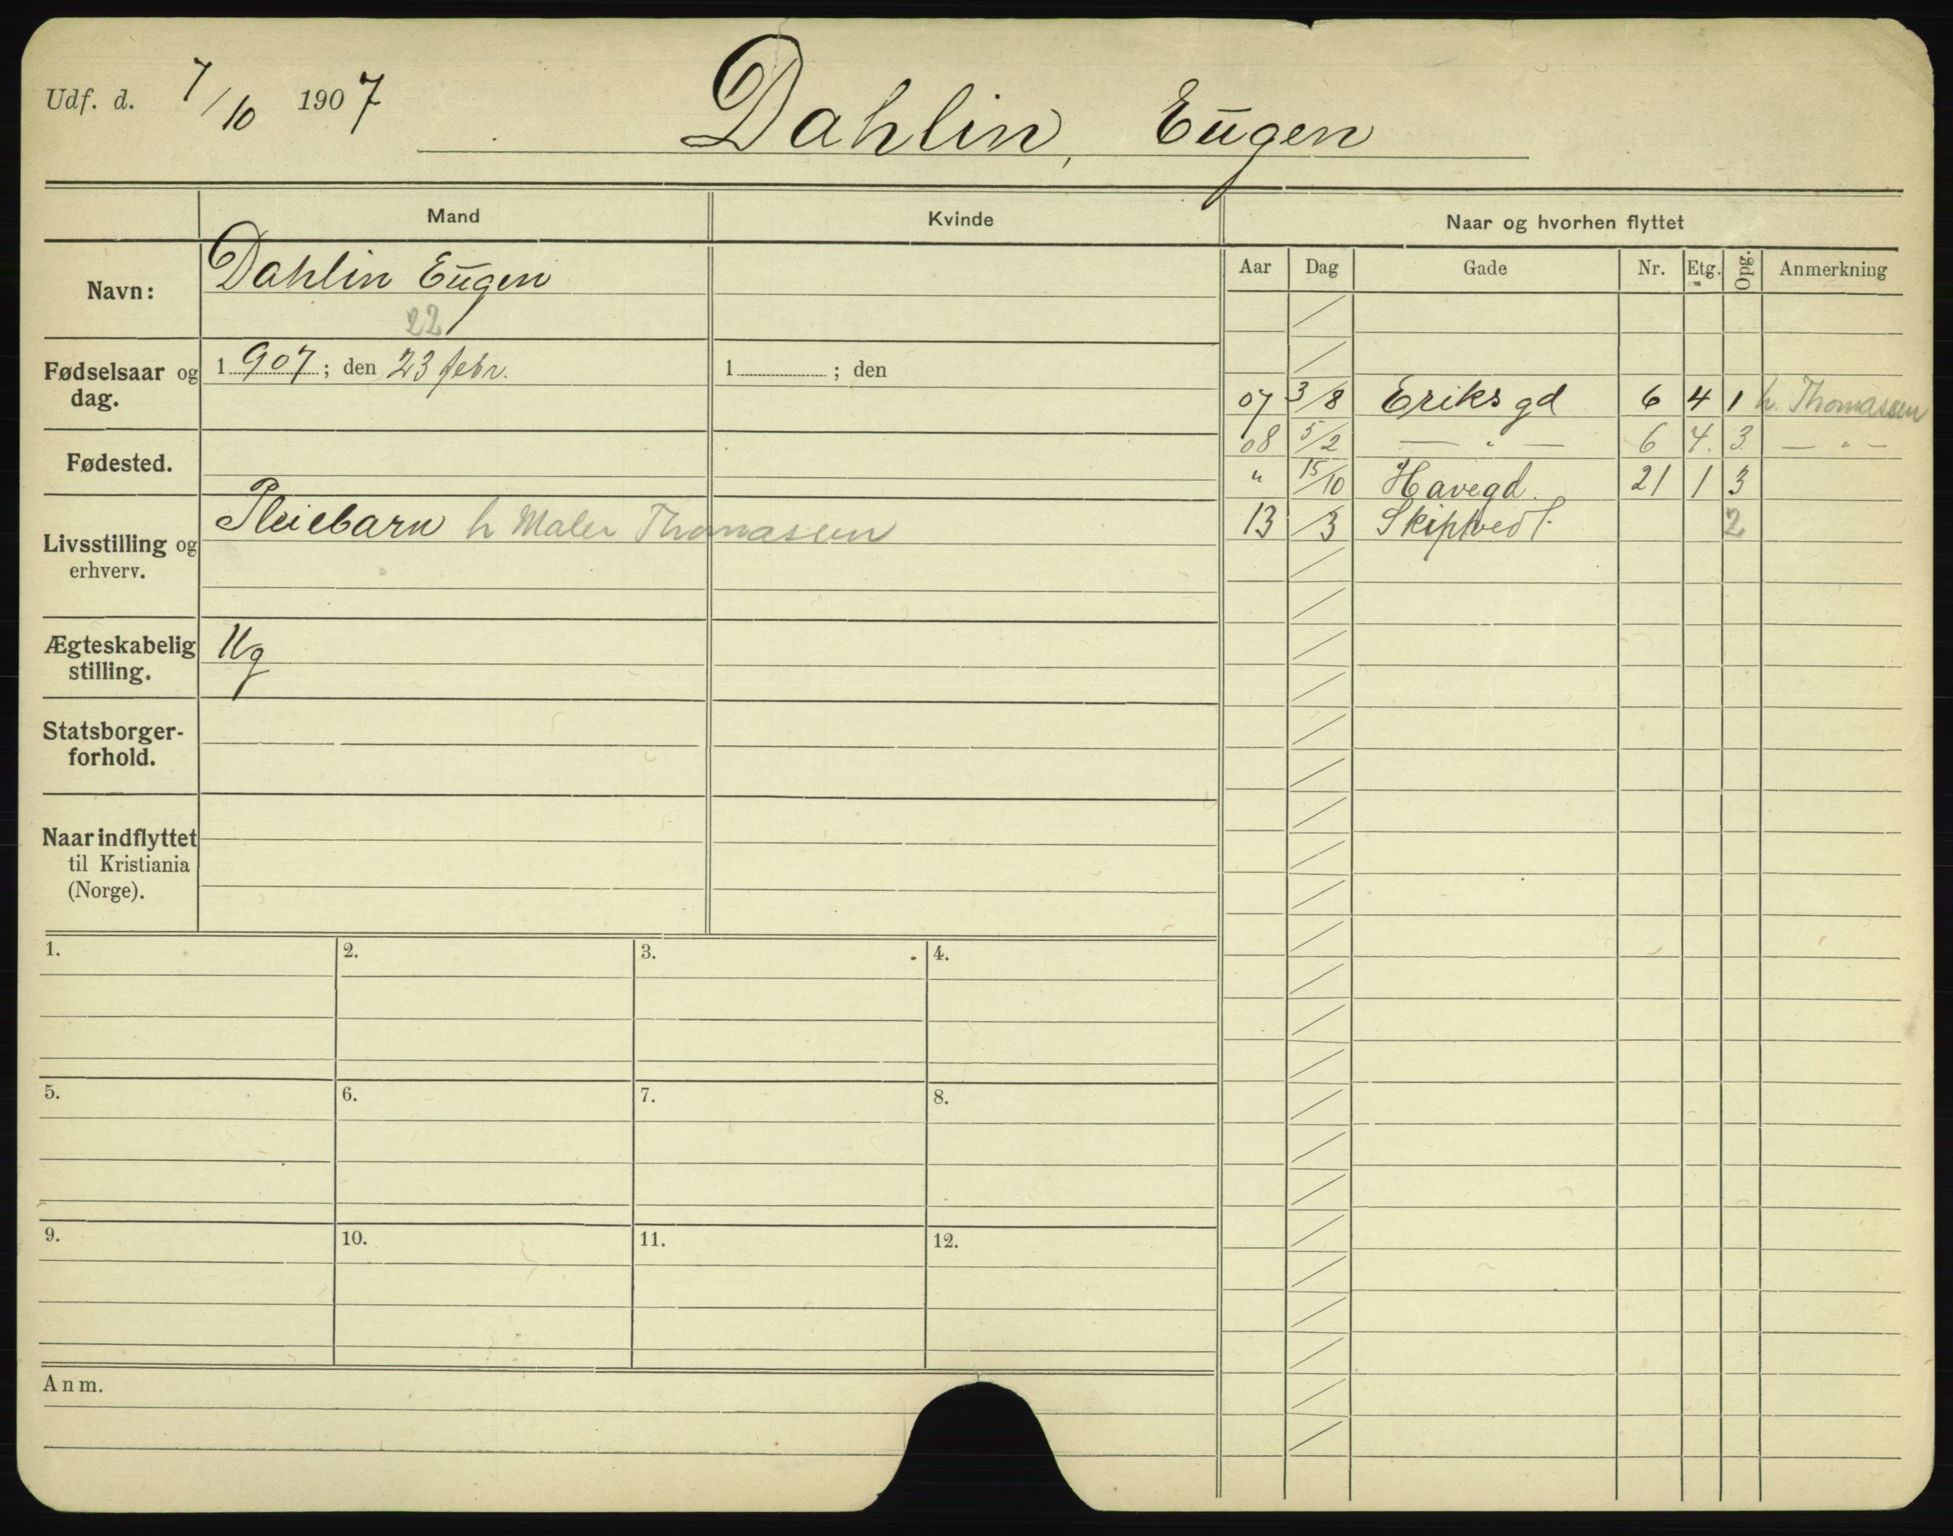 Udf. d. 7/10 1907 Dahlin, Eugen
Mand Kvinde Naar og hvorhen flyttet
Aar Dag Gade Nr. Etg. Opg. Anmerkning
Navn: Dahlin Eugen
22
Fødselsaar og dag. 1907; den 23 febr. 1 ; den
Fødested.
Livsstilling og erhverv. Pleiebarn h Maler Thomassen
Ægteskabelig stilling. Ug
Statsborger-
forhold.
Naar indflyttet
til Kristiania
(Norge).
07 3/8 Eriks gd 6 4 1 h. Thomassen
08 5/2 — " — 6 4. 3 — " —
" 15/10 Havegd. 21 1 3
13 /3 Skiptvedt. 2
1. 2. 3. 4.
5. 6. 7. 8.
9. 10. 11. 12.
Anm.